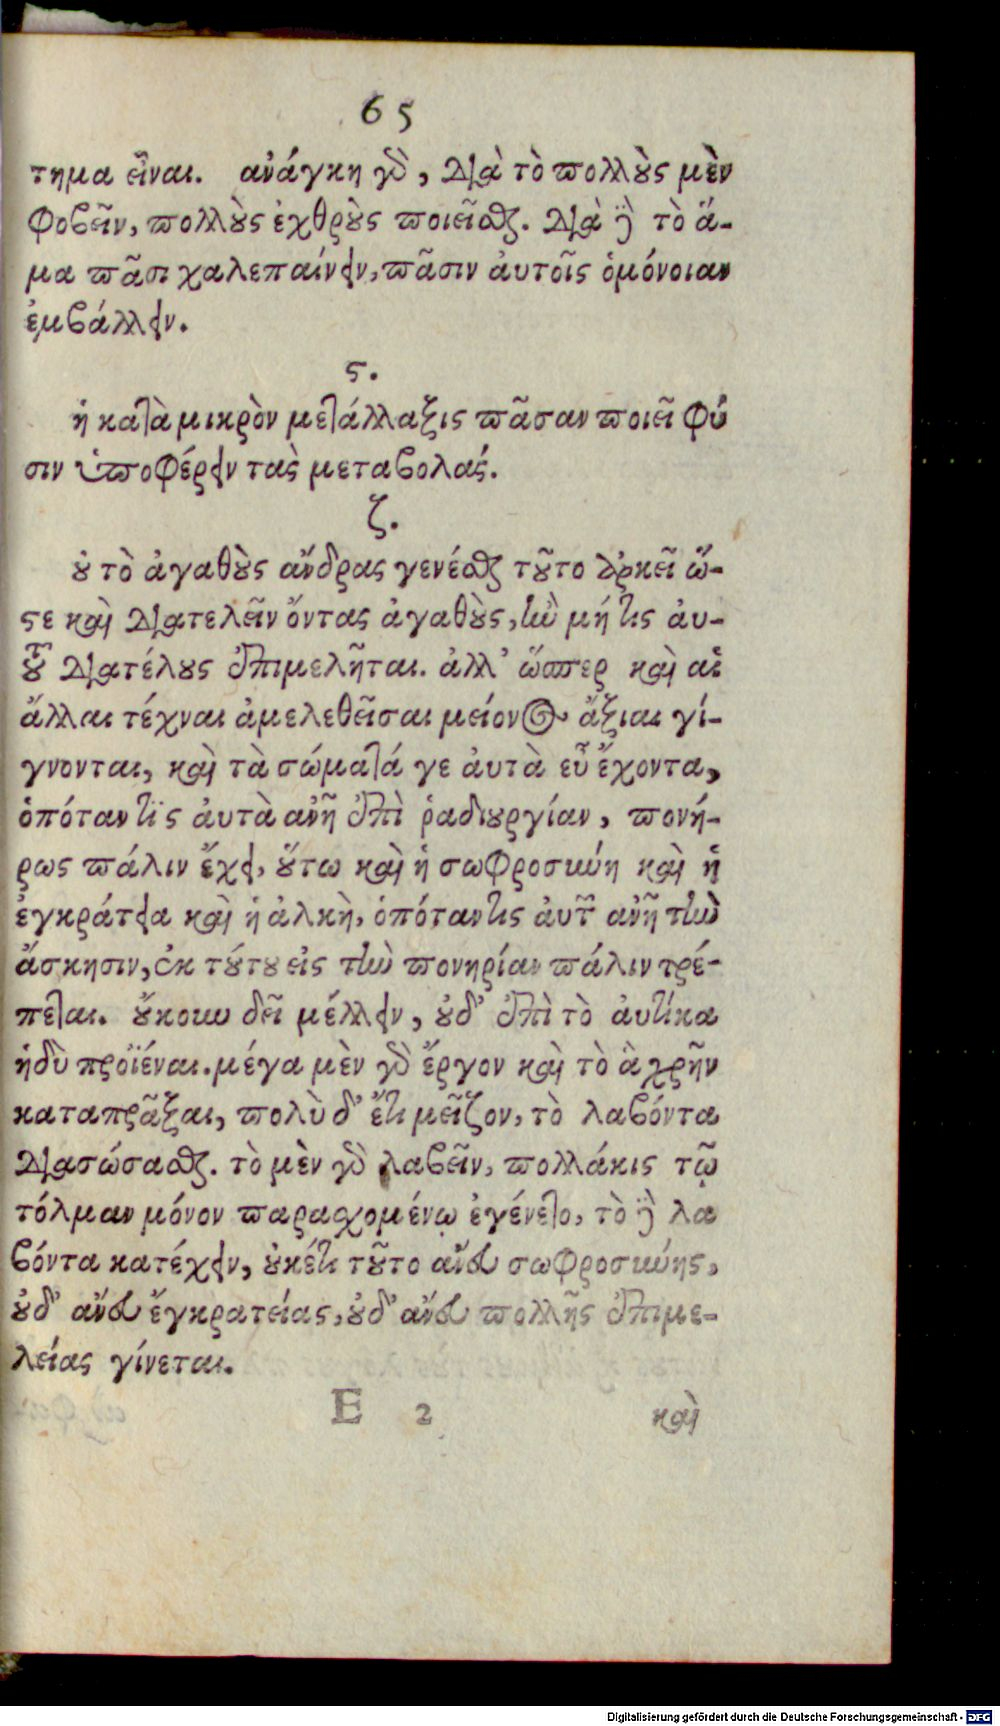 65
τημα εἶναι. ἀνάγκη γὸ, Διὰ τὸ πολλοὺς μὲν
φοβεῖν, πολλοὺς ἐχθροὺς ποιεῖσθαι. Διὰ δὲ τὸ ἅ-
μα πᾶσι χαλεπαίνειν, πᾶσιν αὐτοῖς ὁμόνοιαν
ἐμβάλλειν.
ϛ.
ἡ κατὰ μικρὸν μετάλλαξις πᾶσαν ποιεῖ φύ
σιν ὑποφέρειν τὰς μεταβολάς.
ζ.
οὐ τὸ ἀγαθοὺς ἄνδρας γενέσθαι τοῦτο ἀρκεῖ ὥ-
ϛε καὶ Διατελεῖν ὄντας ἀγαθοὺς, ἢν μή τις αὐ-
τοῦ Διατέλους ἐπιμελῆται. ἀλλ' ὥσπερ καὶ αἱ
ἄλλαι τέχναι ἀμελεθεῖσαι μείονος ἄξιαι γί-
γνονται, καὶ τὰ σώματά γε αὐτὰ εὖ ἔχοντα,
ὁπόταν τὶς αὐτὰ ἀνῇ ἐπὶ ῥαδιουργίαν, πονή-
ρως πάλιν ἔχει, οὕτω καὶ ἡ σωφροσύνη καὶ ἡ
ἐγκράτεια καὶ ἡ ἀλκὴ, ὁπόταν τις αὐτῶν ἀνῇ τὴν
ἄσκησιν, ἐκ τούτου εἰς τὴν πονηρίαν πάλιν τρέ-
πεται. οὔκουν δεῖ μέλλειν, οὐδ' ἐπὶ τὸ αὐτίκα
ἡδὺ προϊέναι. μέγα μὲν γὸ ἔργον καὶ τὸ ἃ χρῆν
καταπρᾶξαι, πολὺ δ' ἔτι μεῖζον, τὸ λαβόντα
Διασώσασθαι. τὸ μὲν γὸ λαβεῖν, πολλάκις τῷ
τόλμαν μόνον παρασχομένῳ ἐγένετο, τὸ δὲ λα
βόντα κατέχειν, οὐκέτι τοῦτο ἄνευ σωφροσύνης,
οὐδ' ἄνευ ἔγκρατείας, οὐδ' ἄνευ πολλῆς ἐπιμε-
λείας γίνεται.
E 2 καὶ
Digitalisierung gefördert durch die Deutsche Forschungsgemeinschaft - DFG